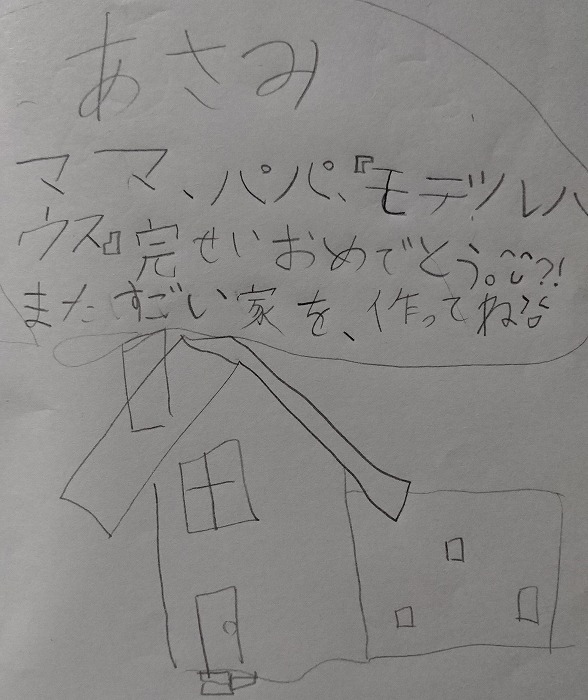 あさみ
ママ、パパ、『モデルハ
ウス』完せいおめでとう。^^?!
またすごい家を、作ってね